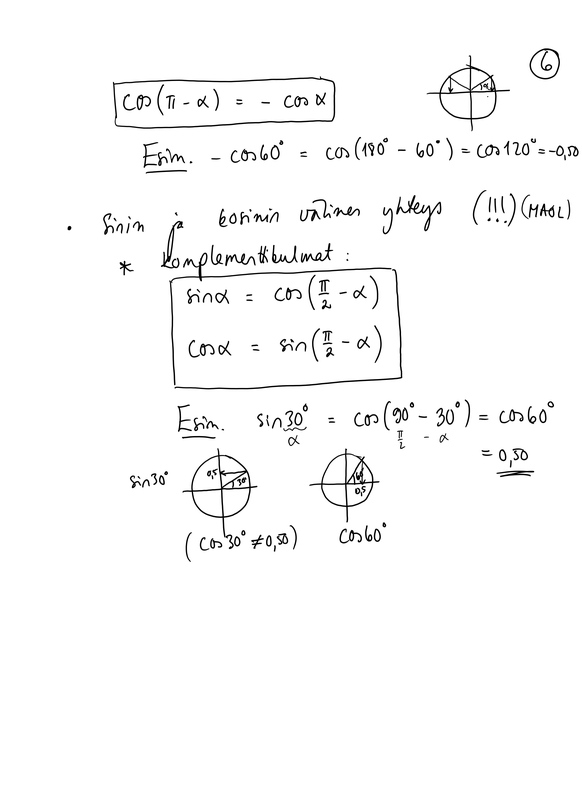 6
cos(π - α) = - cosα
α
Esim. - cos60° = cos(180° - 60°) = cos120° = -0,50
• Sinin ja kosinin välinen yhteys (!!!) (MAOL)
* Komplementtikulmat:
sinα = cos(π/2 - α)
cosα = sin(π/2 - α)
Esim. sin30° = cos(90° - 30°) = cos60°
α π/2 - α
= 0,50
sin30° 0,5 30° 60° 0,5
(cos30° ≠ 0,50) cos60°